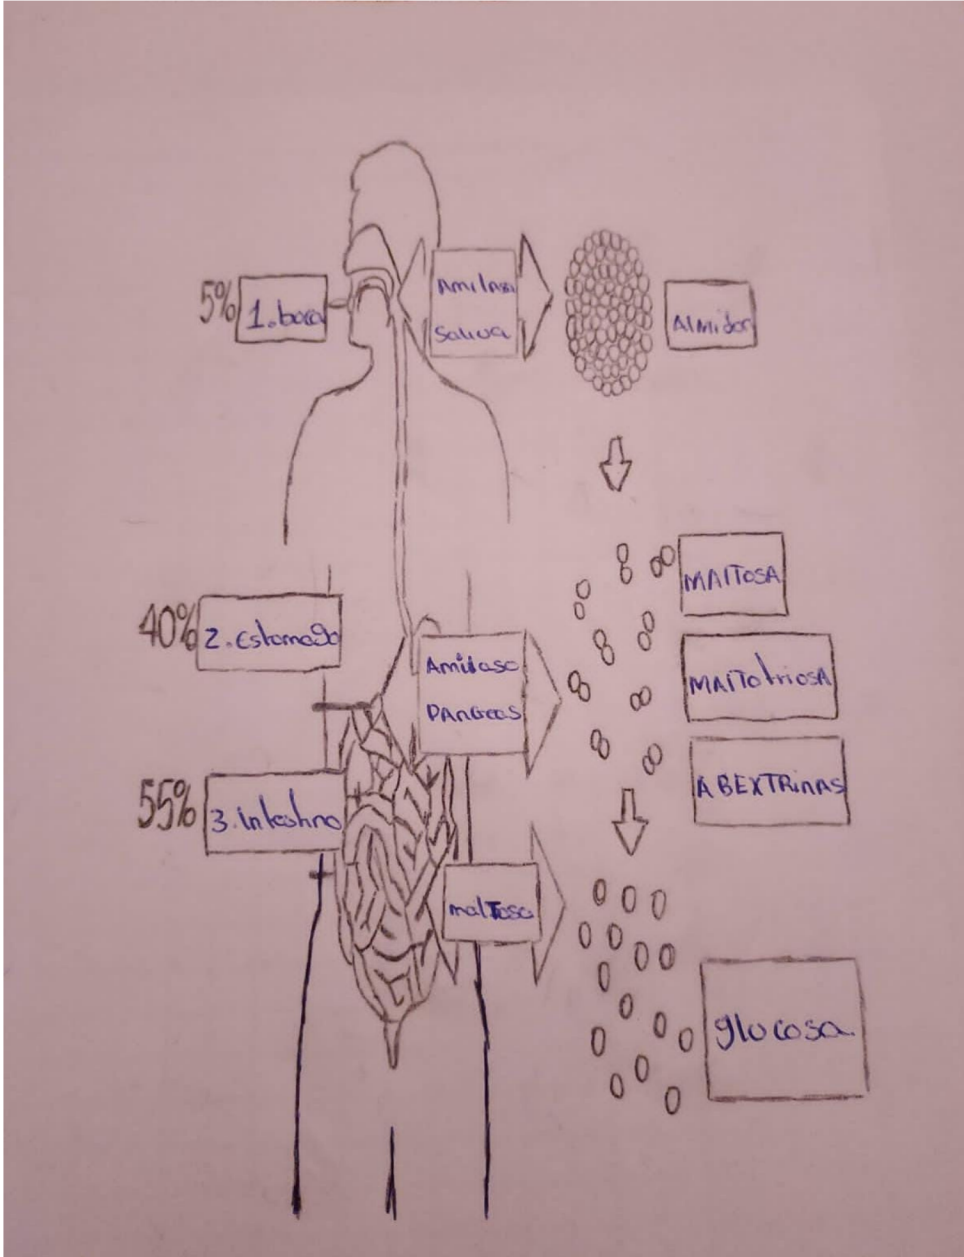 5%
1. boca
Amilasa
Saliva
Almidon
40%
2. Estomago
Amilasa
PANGEAS
MAlTOSA
MAlTOtriOSA
ABEXTRinAS
55%
3. intestino
malTosa
glucosa